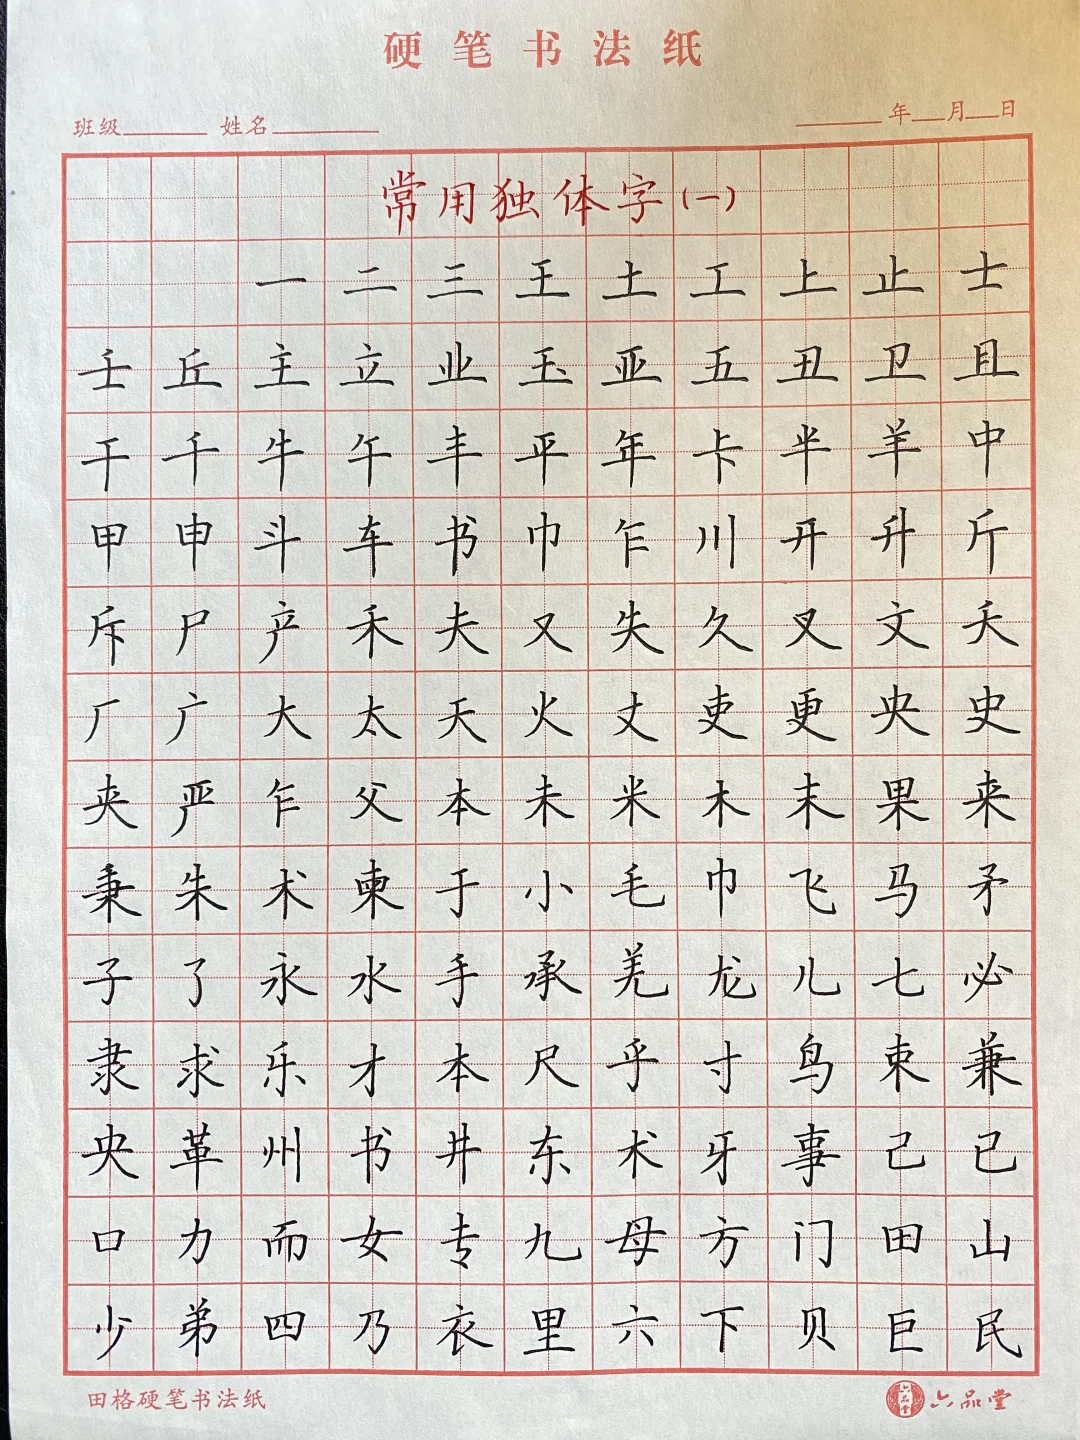 硬笔书法纸
班级 姓名 年 月 日
常用独体字(一)
一二三王土工上止士
壬丘主立业玉亚五丑卫且
干千牛午丰平年卡半羊中
甲申斗车书巾乍川开升斤
斥尸产禾夫又失久叉文夭
厂广大太天火丈吏更央史
夹严乍父本未米木末果来
秉朱术柬于小毛巾飞马矛
子了永水手承羌龙儿七必
隶求乐才本尺乎寸鸟束兼
央革州书井东术牙事己已
口力而女专九母方门田山
少弟四乃衣里六下贝巨民
田格硬笔书法纸
六品堂 六品堂